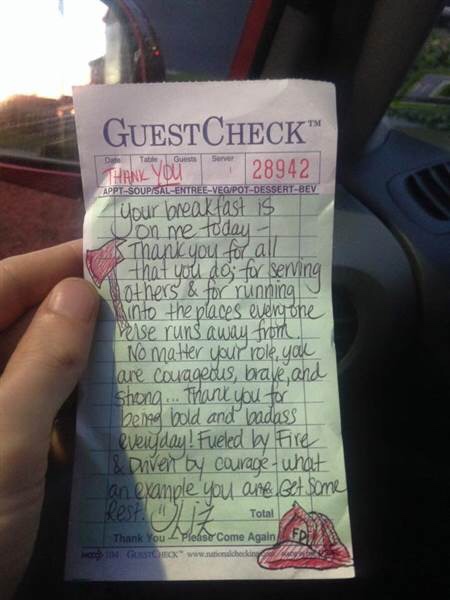 GUESTCHECK™
Date Table Guests Server
THANK YOU 28942
APPT-SOUP/SAL-ENTREE-VEG/POT-DESSERT-BEV
Your breakfast is
on me today -
Thank you for all
that you do; for serving
others & for running
into the places everyone
else runs away from.
No matter your role, you
are courageous, brave, and
strong... Thank you for
being bold and badass
everyday! Fueled by Fire
& Driven by courage - what
an example you are. Get Some
Rest. Liz
Total
Thank You Please Come Again
FD
104 GUESTCHECK™ www.nationalchecking